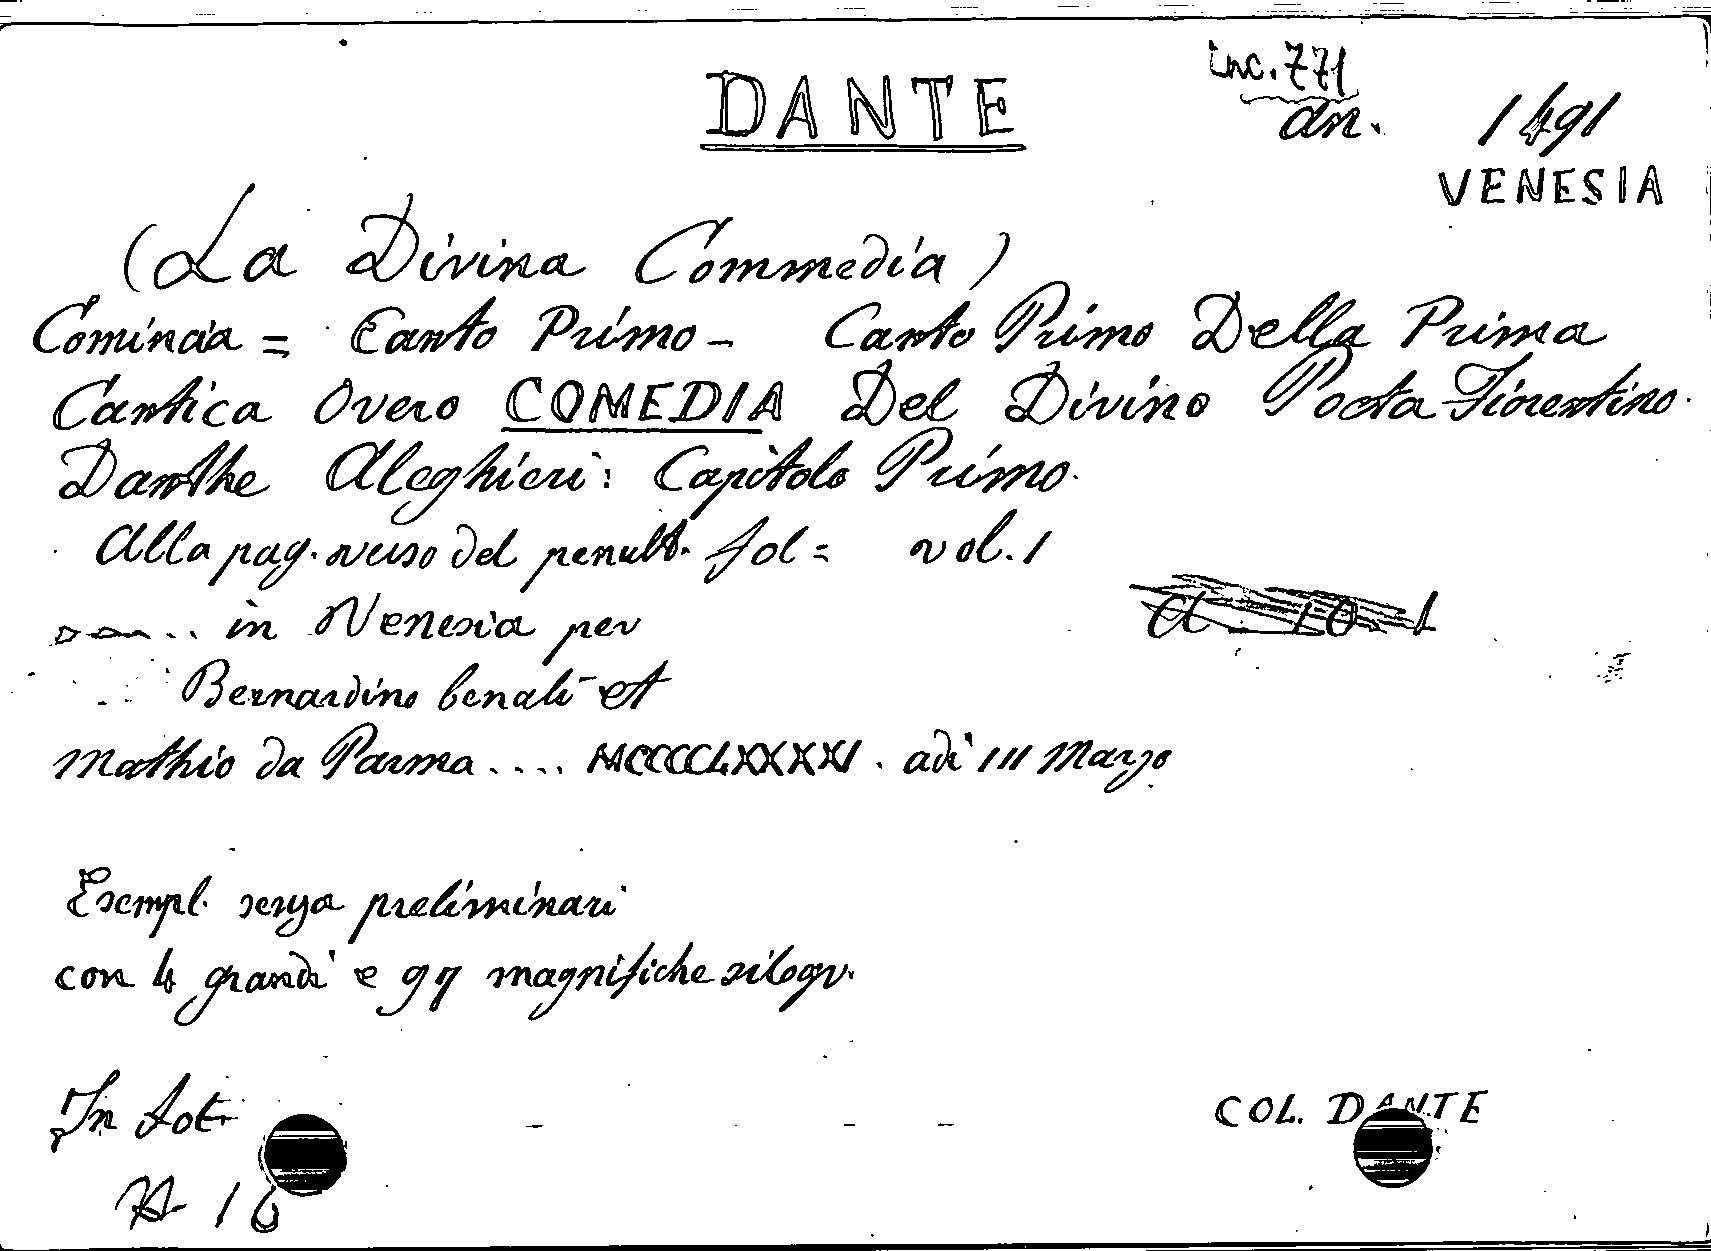 inc. 771
DANTE
dn. 1491
VENESIA
(La Divina Commedia)
Comincia = Canto Primo - Canto Primo Della Prima
Cantica Overo COMEDIA Del Divino Poeta Fiorentino.
Danthe Aleghieri: Capitolo Primo.
Alla pag. verso del penult. fol = vol. 1
.. in Venesia per
Bernardino benali et
Mathio da Parma .... MCCCCLXXXXI. adi III Marzo
Esempl. senza preliminari
con 4 grandi e 97 magnifiche silogr.
In fol
COL. DANTE